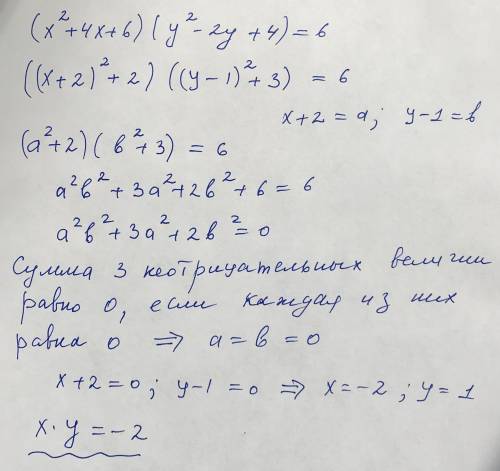 (x²+4x+6)(y²-2y+4)=6
((x+2)²+2)((y-1)²+3) = 6
x+2=a; y-1=в
(a²+2)(в²+3) = 6
a²в²+3a²+2в²+6=6
a²в²+3a²+2в²=0
Сумма 3 неотрицательных величин
равно 0, если каждая из них
равна 0 ⇒ a=в=0
x+2=0; y-1=0 ⇒ x=-2; y=1
x·y=-2